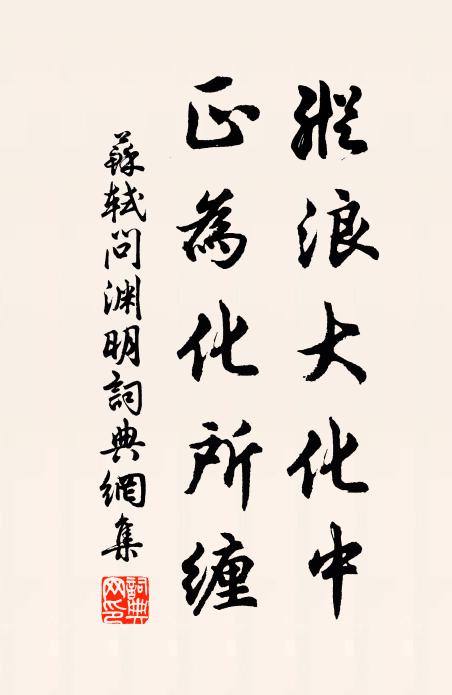 縱浪大化中
正為化所纏
蘇軾問淵明詞典網集
詞典网印